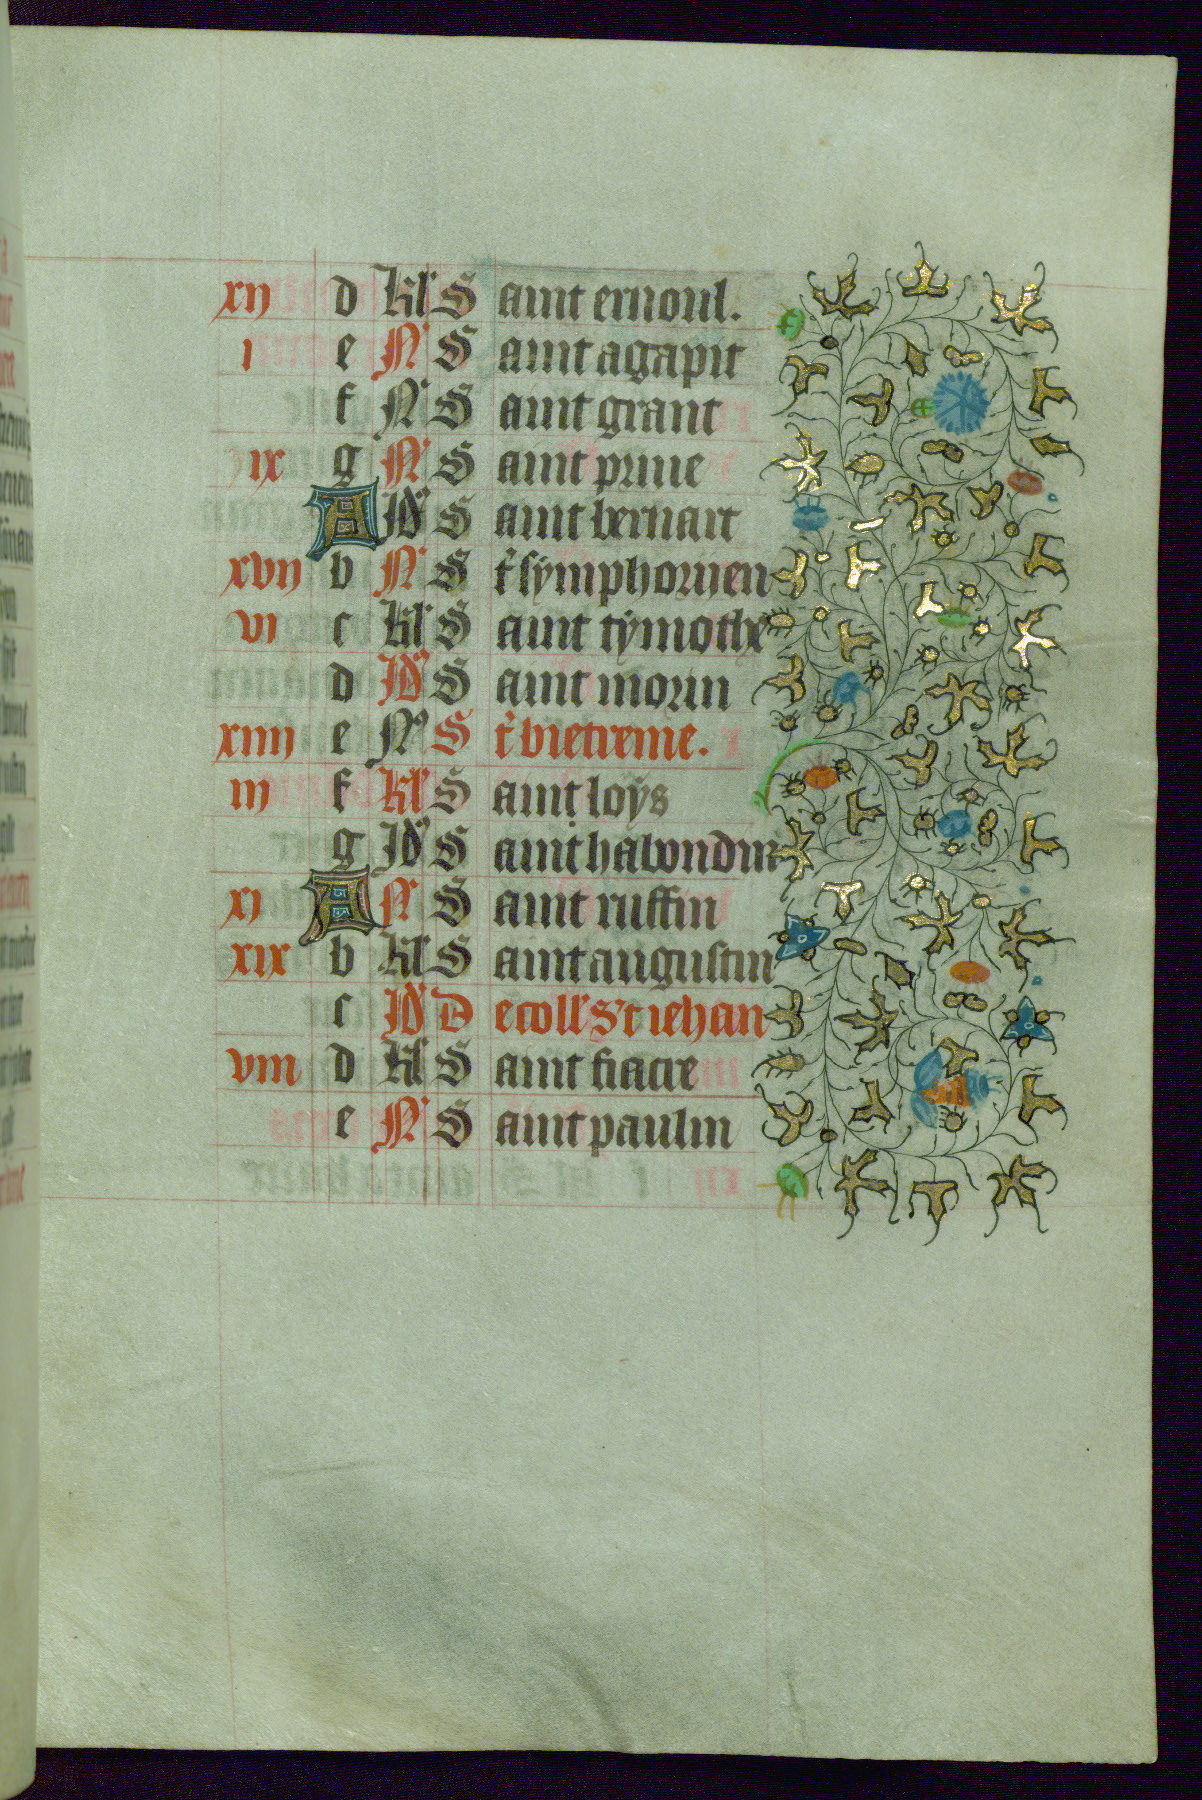 xij d kl' S aint ernoul.
i e N' S aint agapit
f N' S aint grant
ix g N' S aint priue
A Id' S aint bernart
xvij b N' S t' symphorijen
vi c kl' S aint tymothe
d Id' S aint morin
xiiij e N' S t' bietremie.
iij f kl' S aint loÿs
g Id' S aint habondin
xi A N' S aint ruffin
xix b kl' S aint augustin
c Id' D ecoll' St iehan
viii d kl' S aint fiacre
e N' S aint paulin